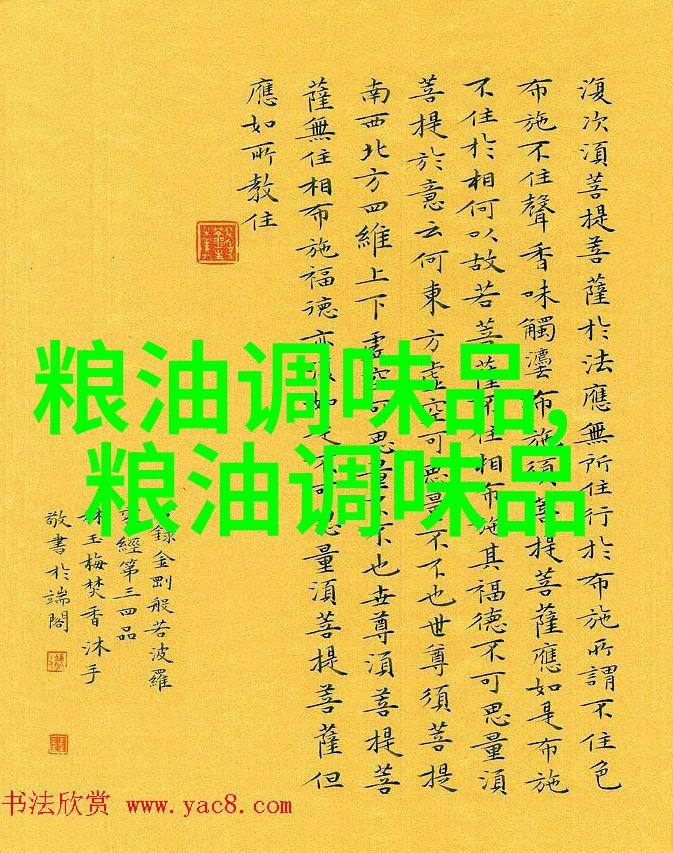 復次湏菩提菩薩於法應無所住行於布施所謂不住色
布施不住聲香味觸灋布施須菩提菩薩應如是布施
不住於相何以故若菩薩不住相布施其福德不可思量湏
菩提於意云何東方虛空可思量不不也世尊須菩提
南西北方四維上下虛空可思量不不也世尊湏菩提菩
薩無住相布施福德亦復如是不可思量湏菩提菩薩但
應如所教住
粮油调味品,
粮油调味品
錄金剛般若波羅
蜜經第三四品
林玉梅焚香沐手
敬書於端閣
书法欣赏 www.yac8.com